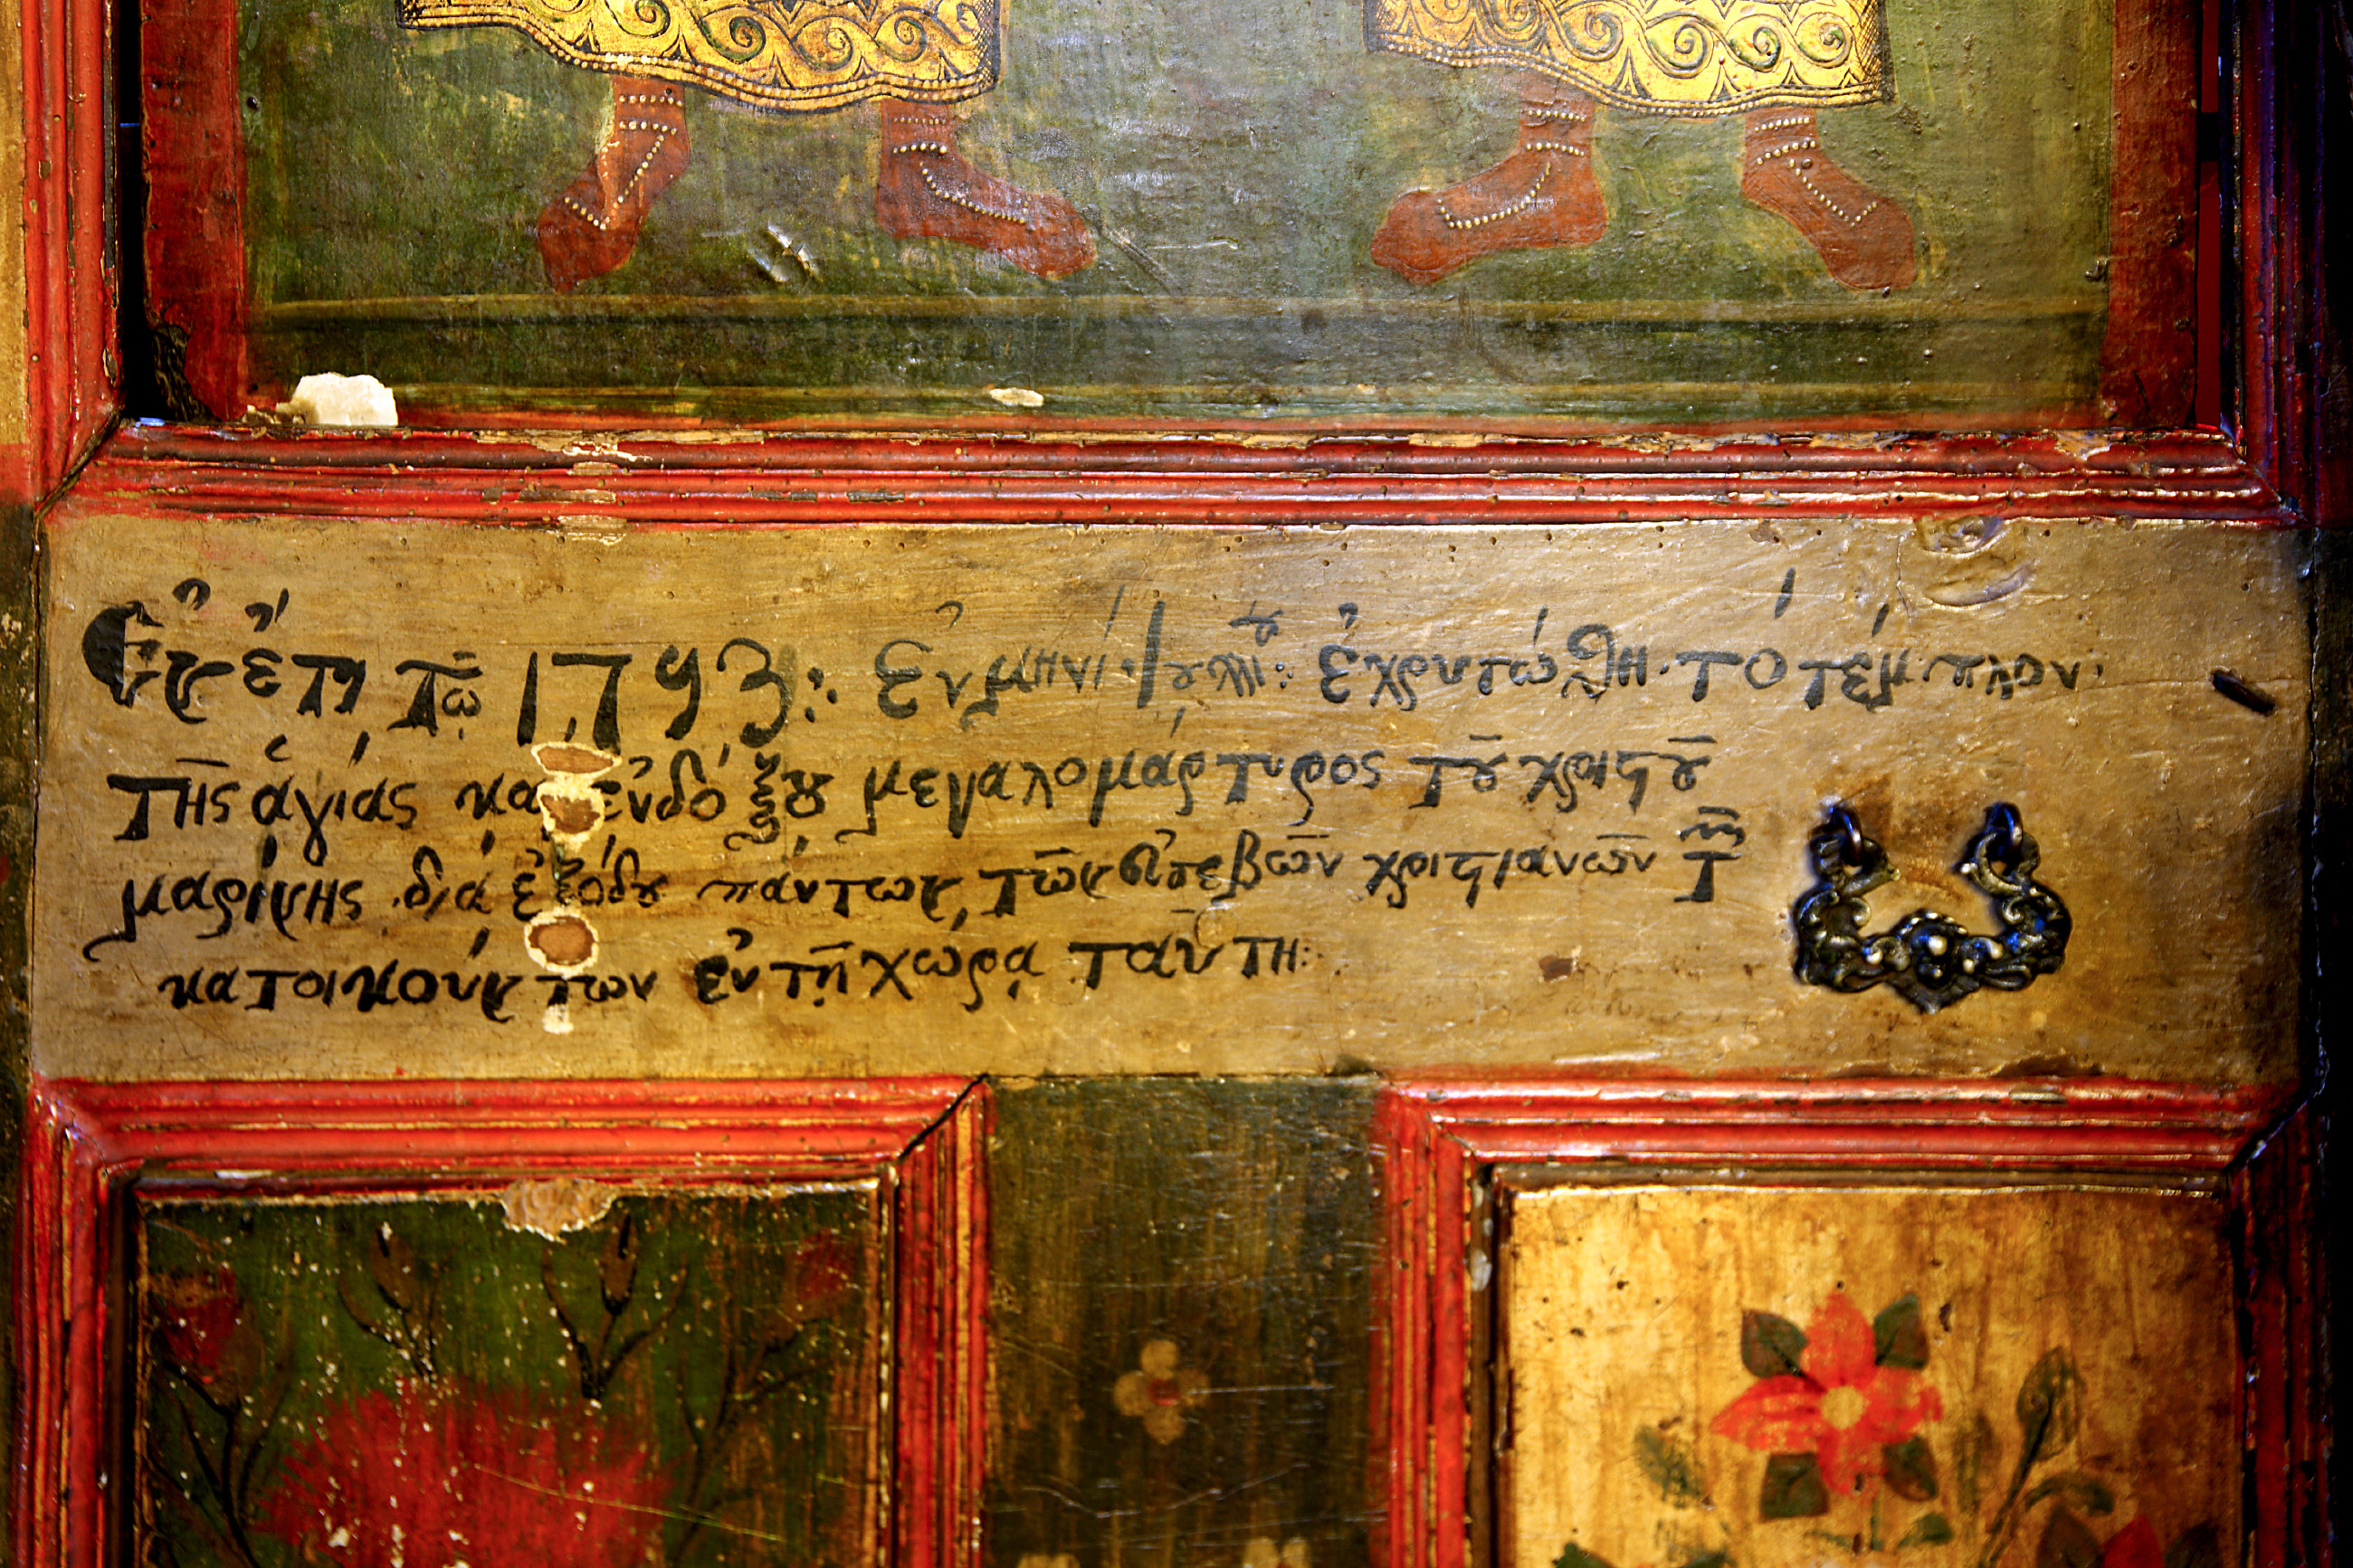 Ἐν ἔτη τῷ 1793: ἐν μηνὶ· Ἰουλίου: ἐχρυσώθη· τὸ τέμπλον.
τῆς ἁγίας καὶ ἐνδόξου μεγαλομάρτυρος τοῦ χριστοῦ
μαρίνης. διὰ ἐξόδου πάντων, τῶν εὐσεβῶν χριστιανῶν τῶν
κατοικούντων ἐν τῇ χώρᾳ ταύτη: